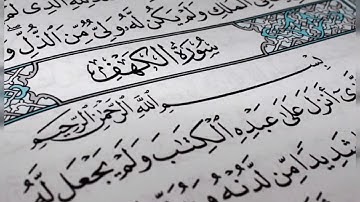 الملك ولم يكن له ولي من الذل و
سُورَةُ الْكَهْفِ
بِسْمِ اللَّهِ الرَّحْمَٰنِ الرَّحِيمِ
أَنزَلَ عَلَىٰ عَبْدِهِ الْكِتَابَ وَلَمْ يَجْعَل لَّهُ
شَدِيدًا مِّن لَّدُنْهُ